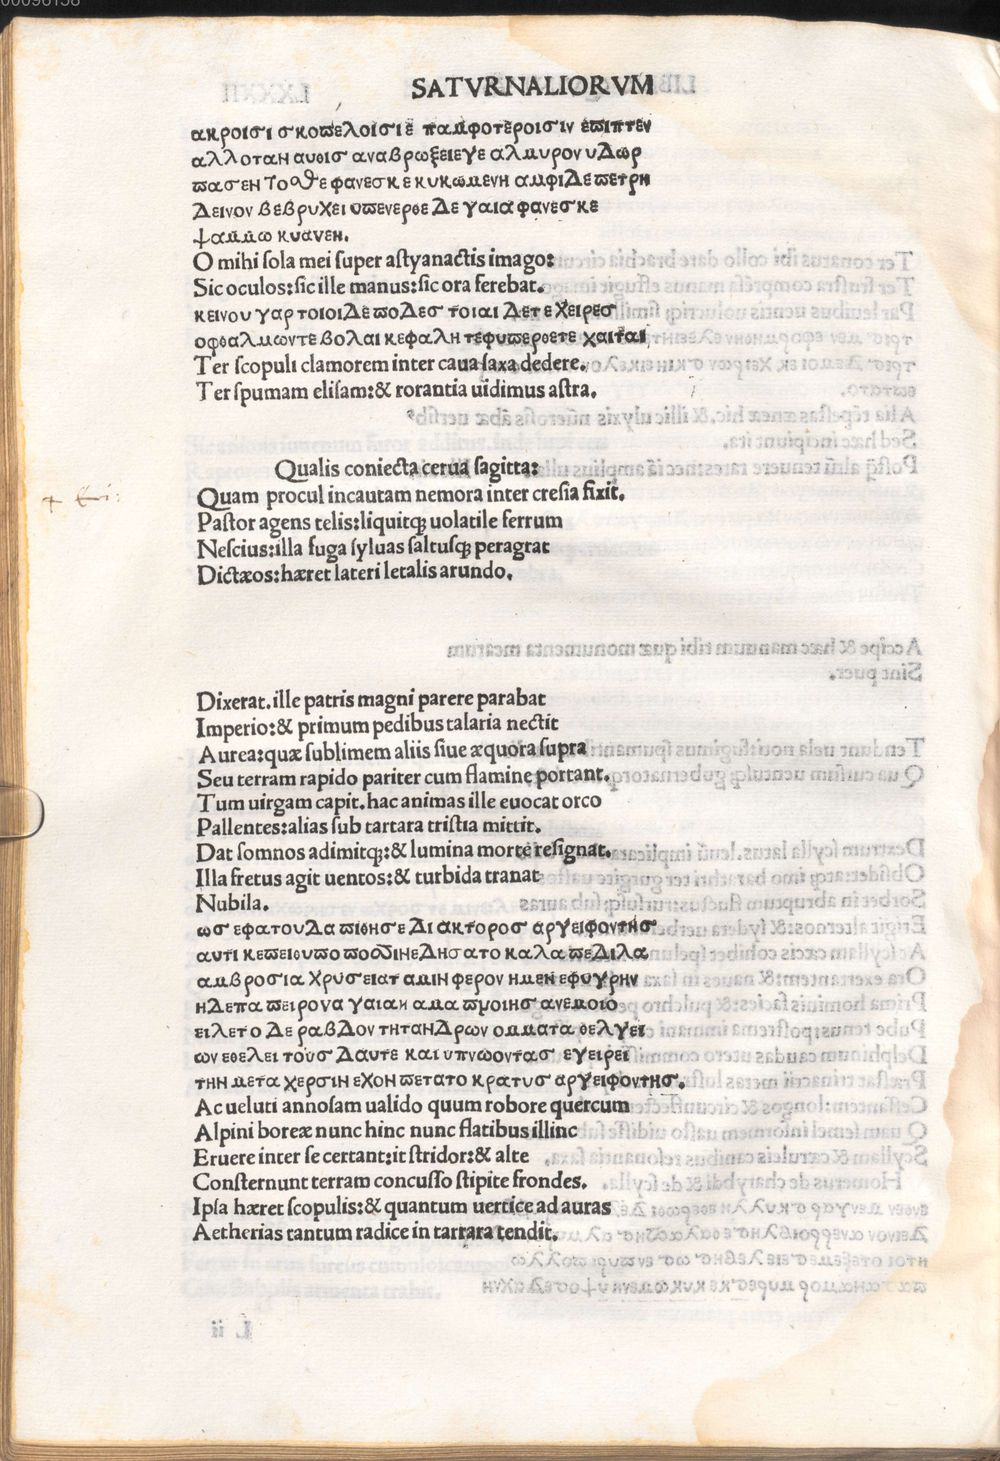 00096158
SATVRNALIORVM
ακροισι σκοπελοισιε παμφοτεροισιν επιπτεν
αλλοταν αυθισ αναβρωξειεγε αλμυρον υΔωρ
πασεν Τοσθε φανεσκε κυκωμενη αμφιΔεπετρη
Δεινον βεβρυχει υπενερθε Δε γαια φανεσκε
ψαμμω κυανεη.
O mihi ſola mei ſuper aſtyanactis imago:
Sic oculos:ſic ille manus:ſic ora ferebat.
κεινου γαρ τοιοιΔε ποΔεσ τοιαι Δετε χειρεσ
οφθαλμωντε βολαι κεφαλη τεφυπερθετε χαιται
Ter ſcopuli clamorem inter caua ſaxa dedere.
Ter ſpumam eliſam:& rorantia uidimus aſtra.
Qualis coniecta cerua ſagitta:
Quam procul incautam nemora inter creſia fixit.
Paſtor agens telis:liquitqꝫ uolatile ferrum
Neſcius:illa fuga ſyluas ſaltuſqꝫ peragrat
Dictæos:hæret lateri letalis arundo.
Dixerat.ille patris magni parere parabat
Imperio:& primum pedibus talaria nectit
Aurea:quæ ſublimem aliis ſiue æquora ſupra
Seu terram rapido pariter cum flamine portant.
Tum uirgam capit.hac animas ille euocat orco
Pallentes:alias ſub tartara triſtia mittit.
Dat ſomnos adimitqꝫ:& lumina morte reſignat.
Illa fretus agit uentos:& turbida tranat
Nubila.
ωσ εφατουΔα πιθησε Δι ακτοροσ αργειφοντησ
αυτι κεπειουπο ποσσινεΔησατο καλα πεΔιλα
αμβροσια χρυσειατ αμιν φερον ημεν εφυγρην
ηΔεπα πειρονα γαιαν αμα πνοιησ ανεμοιο
ειλετο Δε ραβΔον τηταnΔρων ομματα θελγει
ων εθελει τουσ Δαυτε και υπνωοντασ εγειρει
την μετα χερσιν εχον πετατο κρατυσ αργειφοντησ.
Ac ueluti annoſam ualido quum robore quercum
Alpini boreæ nunc hinc nunc flatibus illinc
Eruere inter ſe certant:it ſtridor:& alte
Conſternunt terram concuſſo ſtipite frondes.
Ipſa hæret ſcopulis:& quantum uertice ad auras
Aetherias tantum radice in tartara tendit.